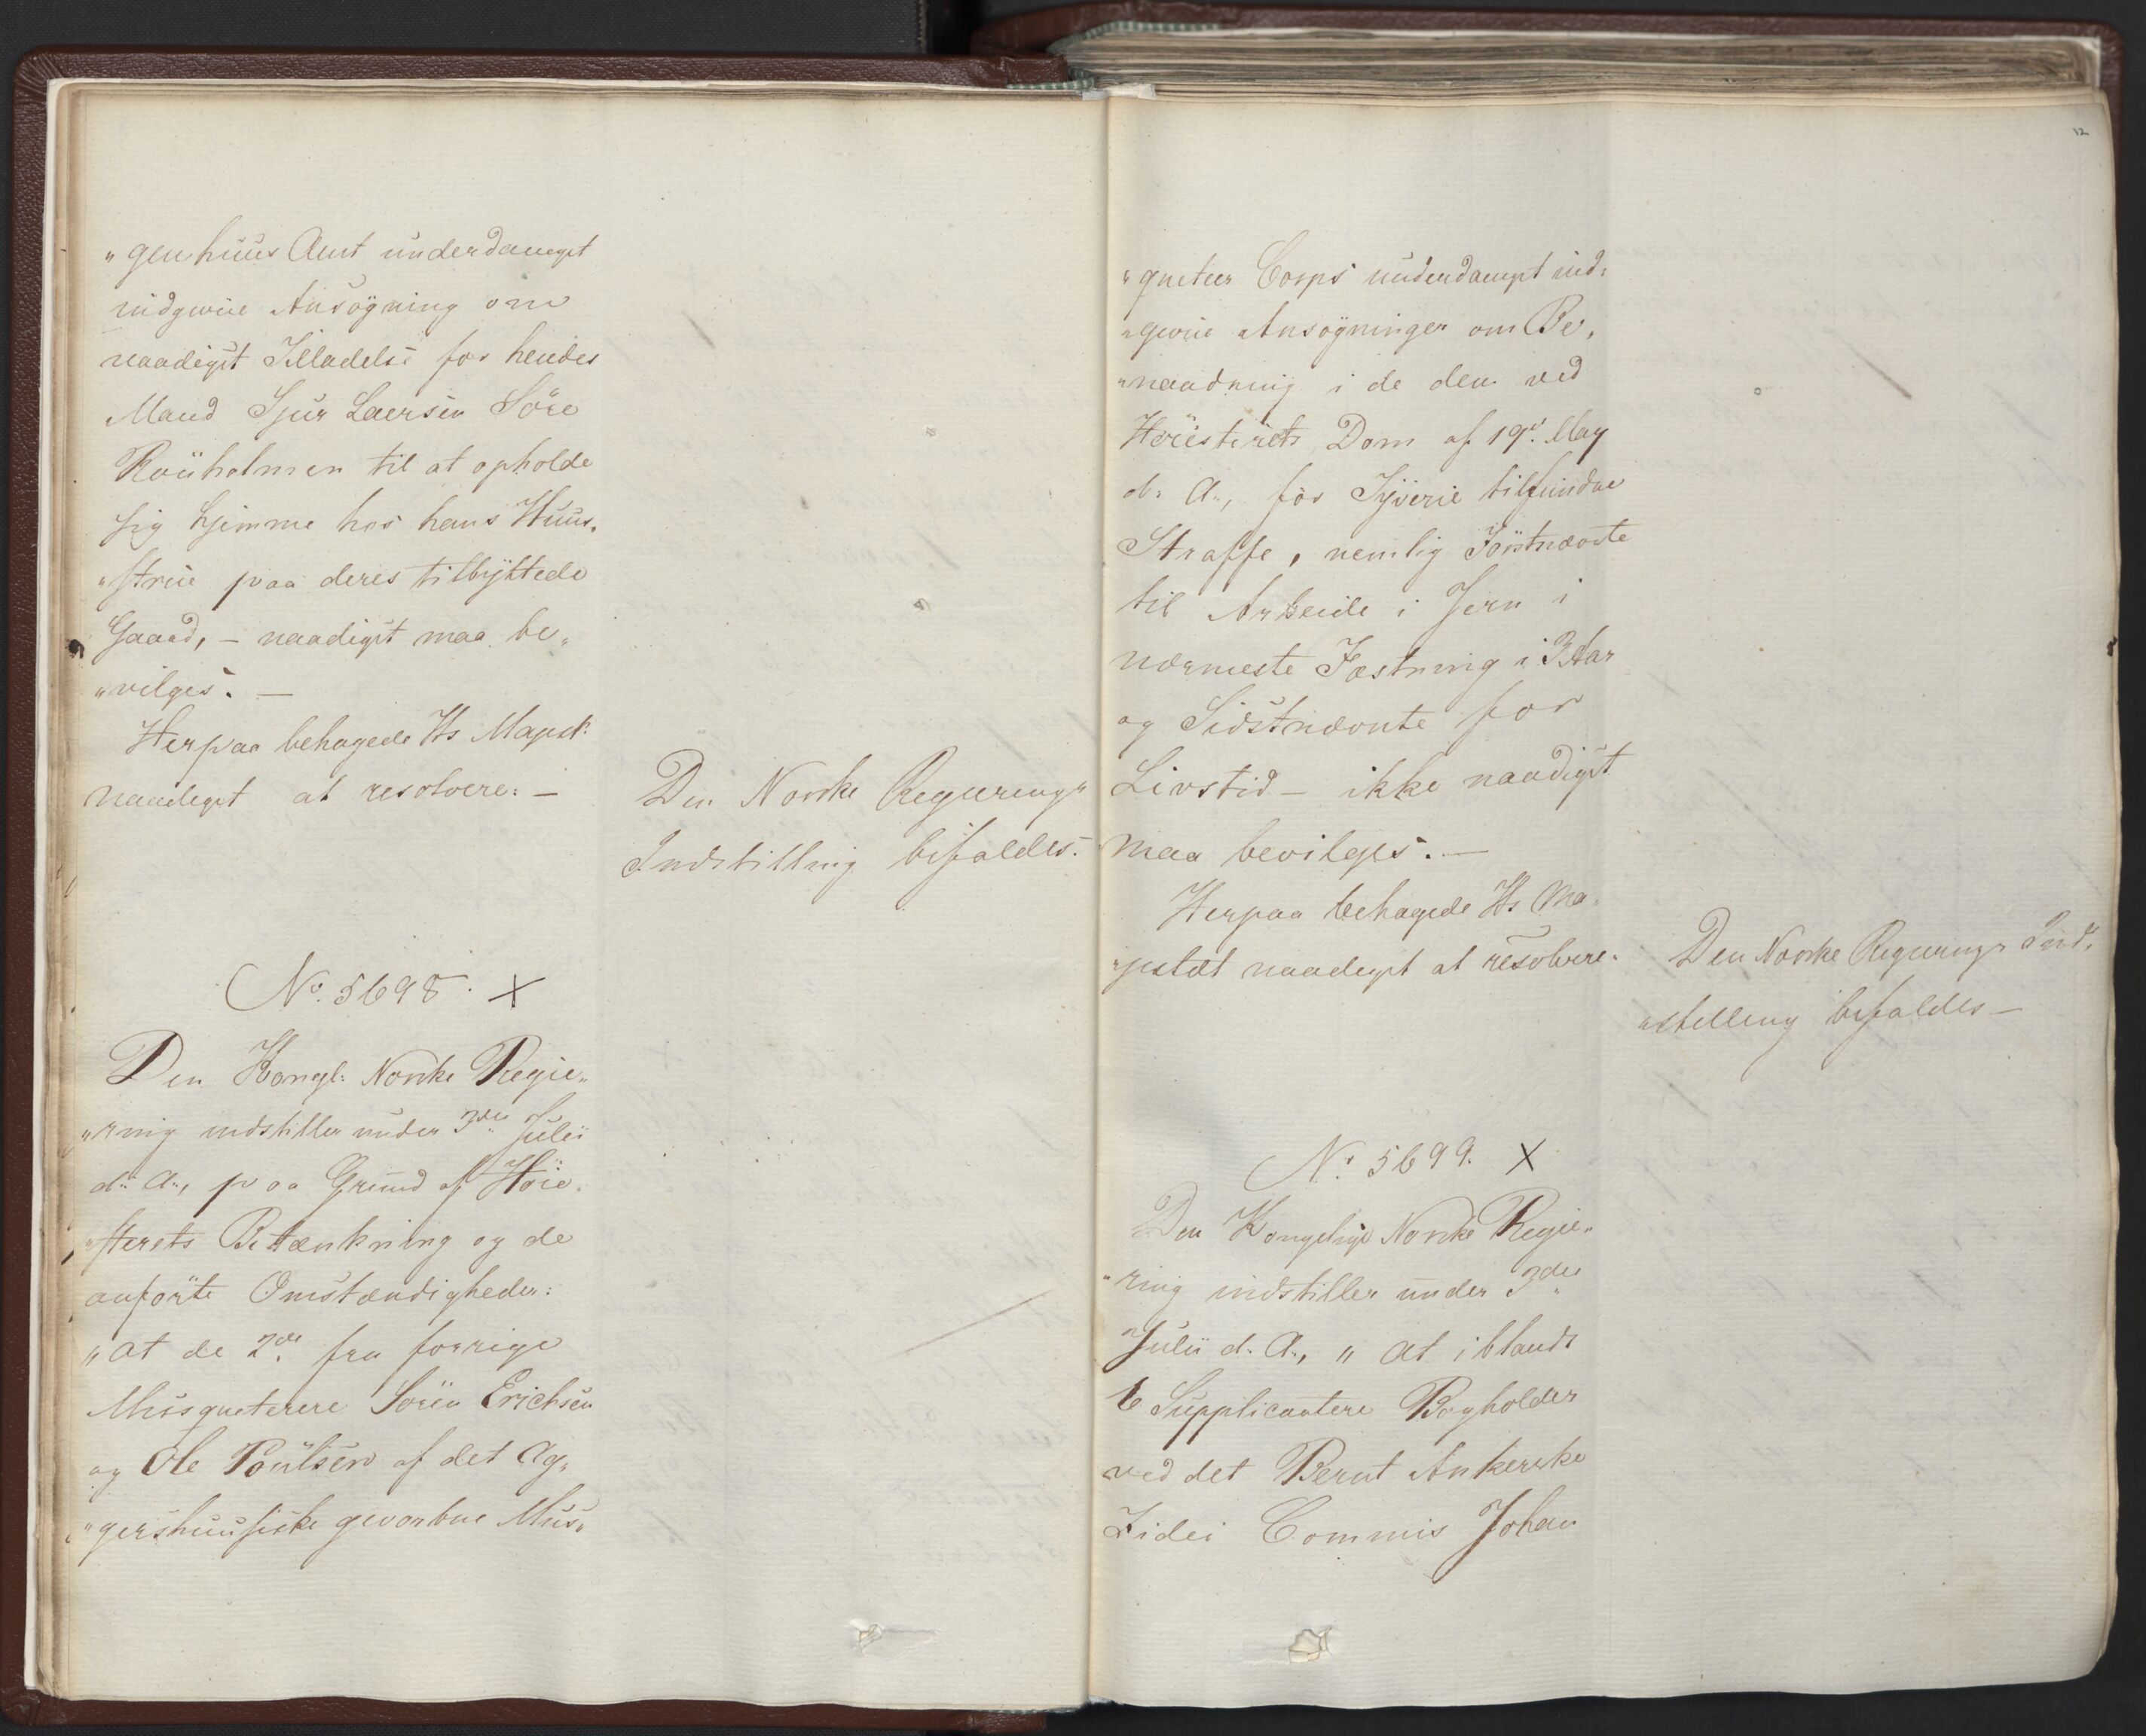 „genhuus Amt underdanigst
indgivne Ansøgning om
naadigst Tilladelse for hendes
Mand Sjur Laersen Söre
Rouholmen til at opholde
sig hjemme hos hans Huus„
„strue paa deres tilbyttede
Gaard, – naadigst maa be„
„vilges. —
Herpaa behagede Hs Majest:
naadigst at resolvere: —
Den Norske Regjerings
Indstilling bifaldes.
No. 5698. X
Den Kongl: Norske Regje„
„ring indstiller under 3die Julii
d: A:, paa Grund af Høie„
„sterets Betænkning og de
anførte Omstændigheder:
„at de 2de fra forrige
Musqueterere Sören Erichsen
og Ole Poulsen af det Ag„
„gershuusiske gevorbne Mus„
12
„queteer Corps underdanigst ind„
„givne Ansøgninger om Be„
„naadning i de dem ved
Høiesterets Dom af 19de May
d: A:, for Tyverie tilfundne
Straffe, nemlig Førstnævnte
til Arbeide i Jern i
nærmeste Fæstning i 3 Aar
og Sidstnævnte for
Livstid – ikke naadigst
maa bevilges. —
Herpaa behagede Hs Ma„
„jestæt naadigst at resolvere:
Den Norske Regjerings Ind„
„stilling bifaldes —
No. 5699. X
Den Kongelige Norske Regje„
„ring indstiller under 3die
Julii d: A:, „at iblandt
6 Supplicantere Bogholder
ved det Bernt Ankerske
Fidei Commis Johan